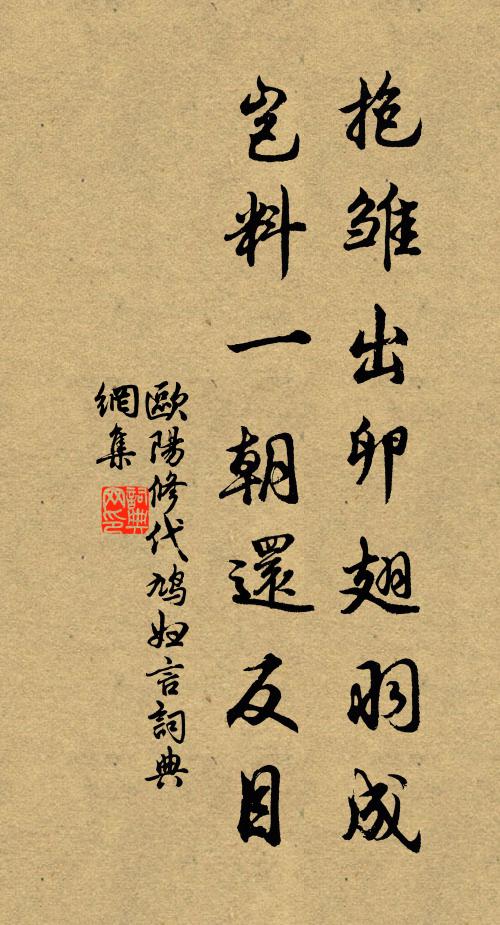 抱雛出卵翅羽成
豈料一朝還反目
歐陽修代鳩婦言詞典
網集
詞典
网印